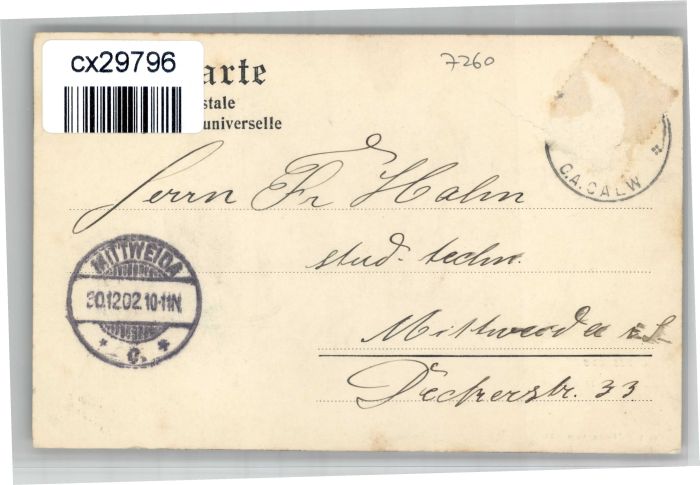 cx29796
arte
stale
universelle
7260
C.A. CALW
Herrn Fr Hahn
stud. techn.
MITTWEIDA
30.12.02.10-11N.
C.
Mittweida i. S.
Deckerstr. 33.